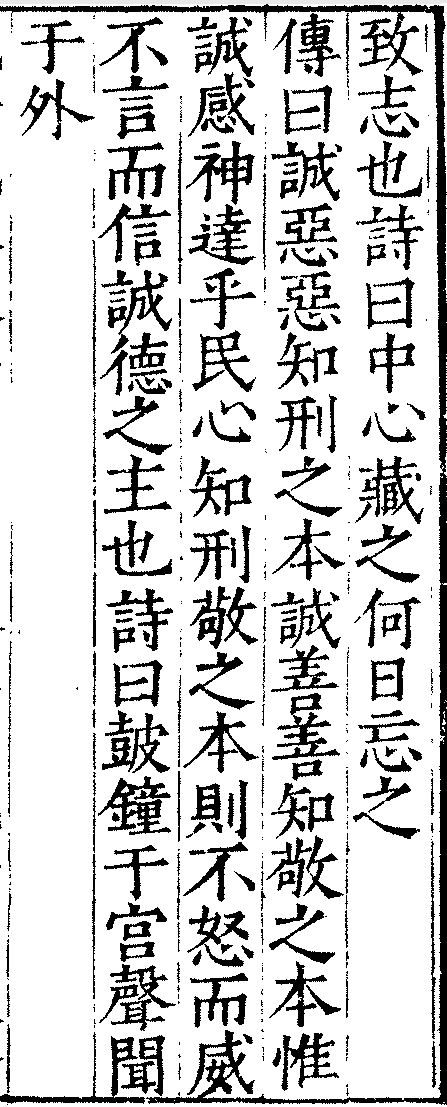 致志也詩曰中心藏之何日忘之
傳曰誠惡惡知刑之本誠善善知敬之本惟
誠感神達乎民心知刑敬之本則不怒而威
不言而信誠德之主也詩曰鼓鐘于宮聲聞
于外